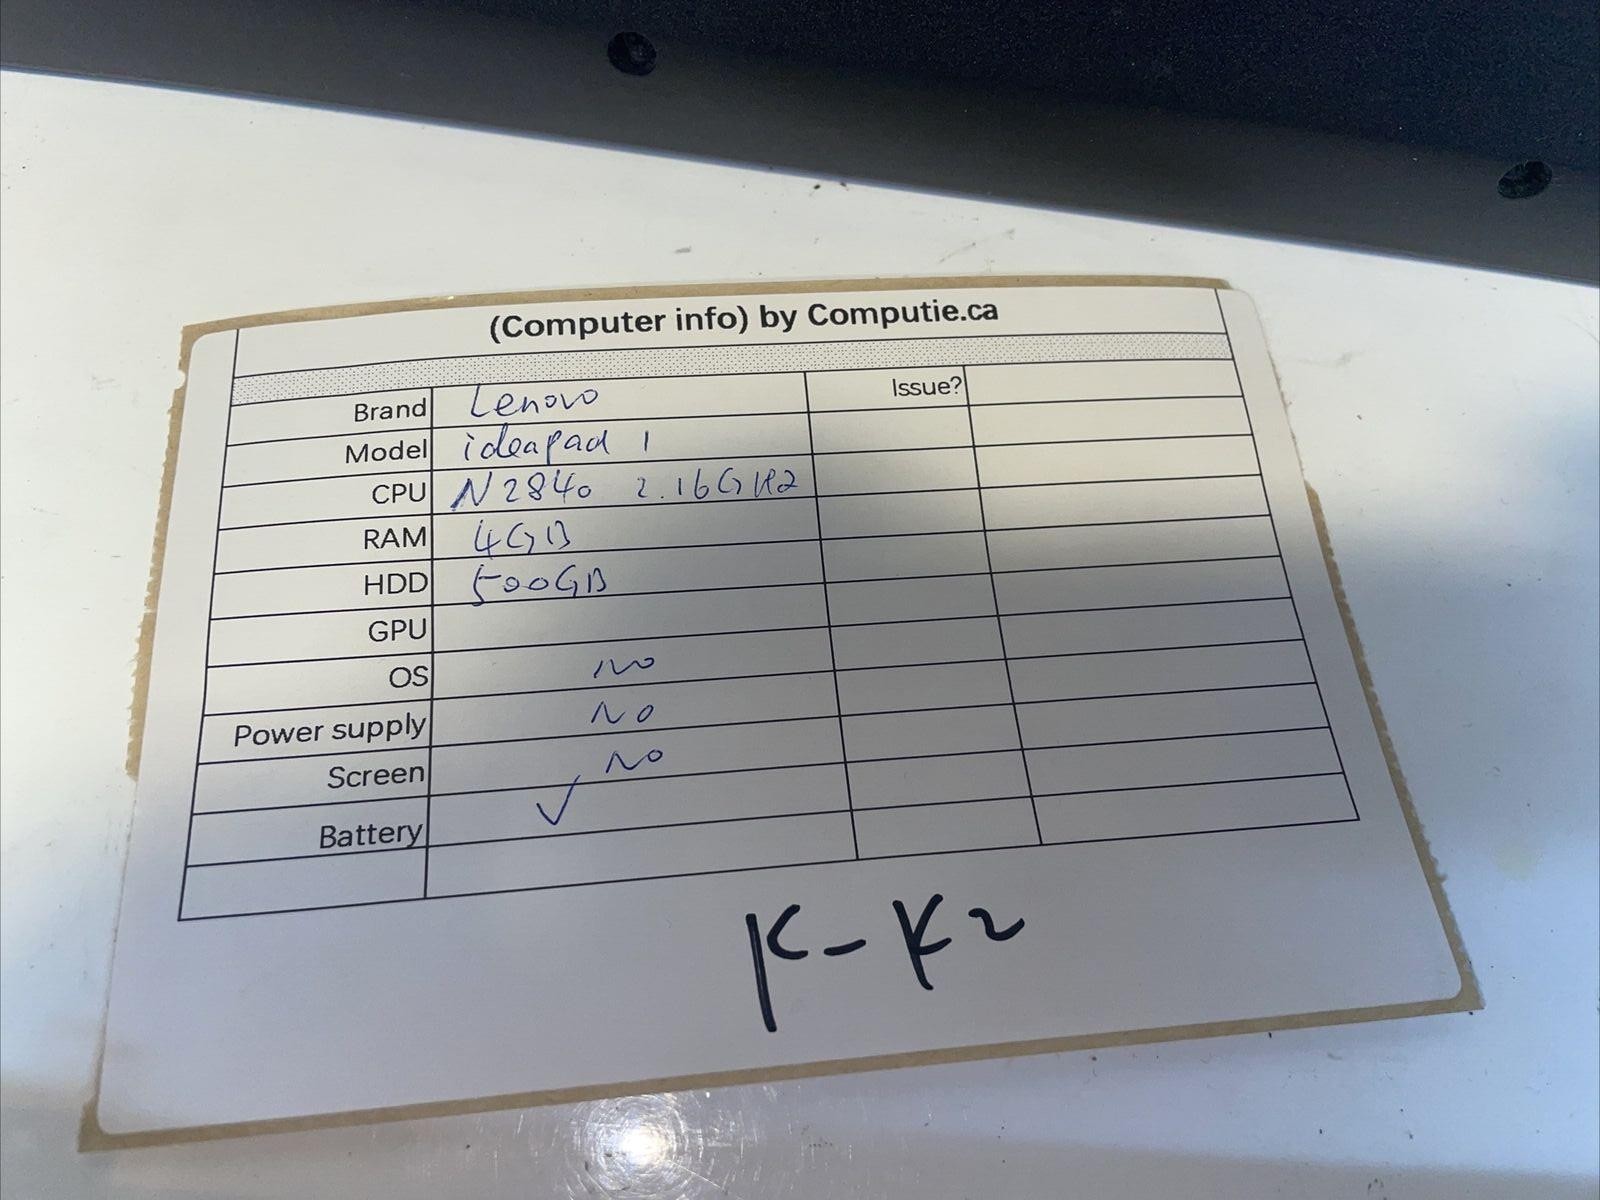 (Computer info) by Computie.ca
Brand Lenovo Issue?
Model ideapad 1
CPU N2840 2.16GHz
RAM 4GB
HDD 500GB
GPU
OS No
Power supply No
Screen No
Battery ✓
K-K2